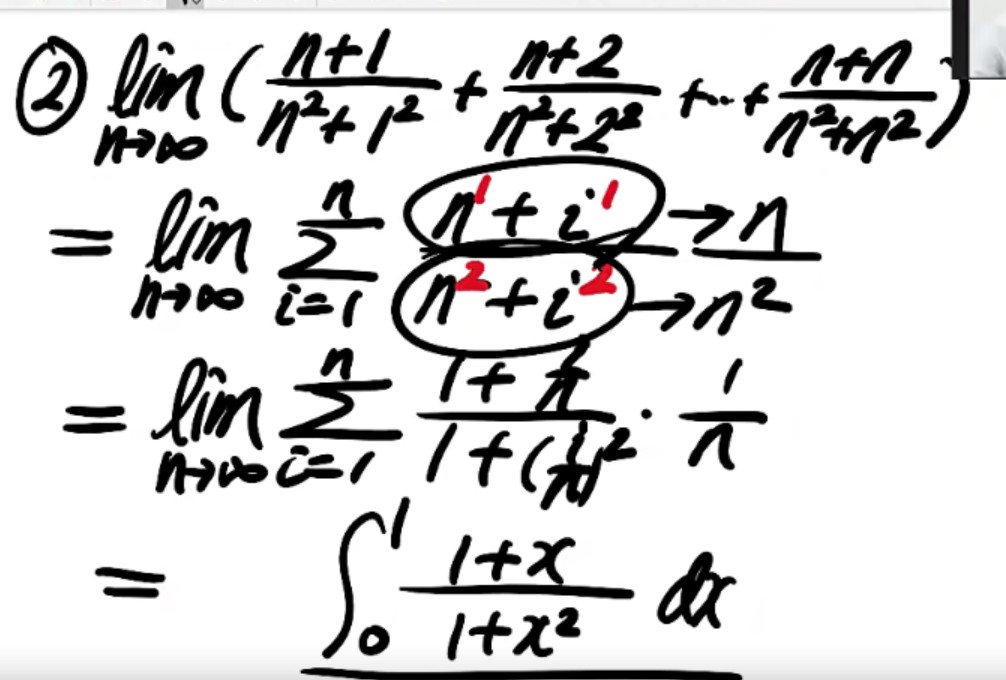 ② lim n→∞ ( (n+1)/(n²+1²) + (n+2)/(n²+2²) +...+ (n+n)/(n²+n²) )
= lim n→∞ Σ i=1 n (n¹+i¹)/(n²+i²) → n / → n²
= lim n→∞ Σ i=1 n (1+i/n)/(1+(i/n)²) · 1/n
= ∫₀¹ (1+x)/(1+x²) dx